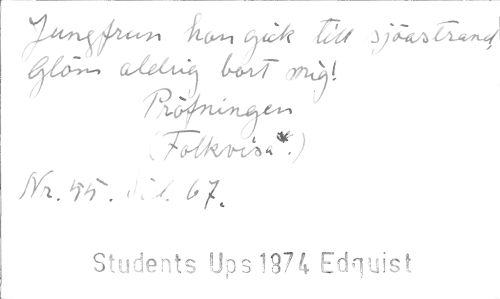 Jungfrun hon gick till sjöastrand,
Glöm aldrig bort mig!
Pröfningen
(Folkvisa*.)
Nr. 55. Sid. 67.
Students Ups 1874 Edquist